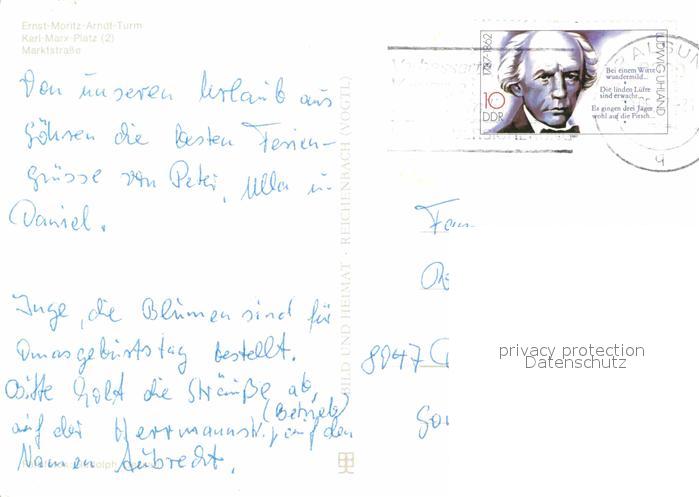 Ernst-Moritz-Arndt-Turm
Karl-Marx-Platz (2)
Marktstraße
Von unseren Urlaub aus
Göhren die besten Ferien-
grüsse von Peter, Ulla u.
Daniel.
Inge, die Blumen sind für
Omasgeburtstag bestellt.
Bitte holt die Sträuße ab,
(Betrieb)
auf der Herrmannstr. auf den
Namen Aubrecht.
BILD UND HEIMAT · REICHENBACH (VOGTL)
1787-1862
LUDWIG UHLAND
Bei einem Wirte
wundermild...
Die linden Lüfte
sind erwacht...
Es gingen drei Jäger
wohl auf die Pirsch...
10
DDR
Fam
8047
privacy protection
Datenschutz